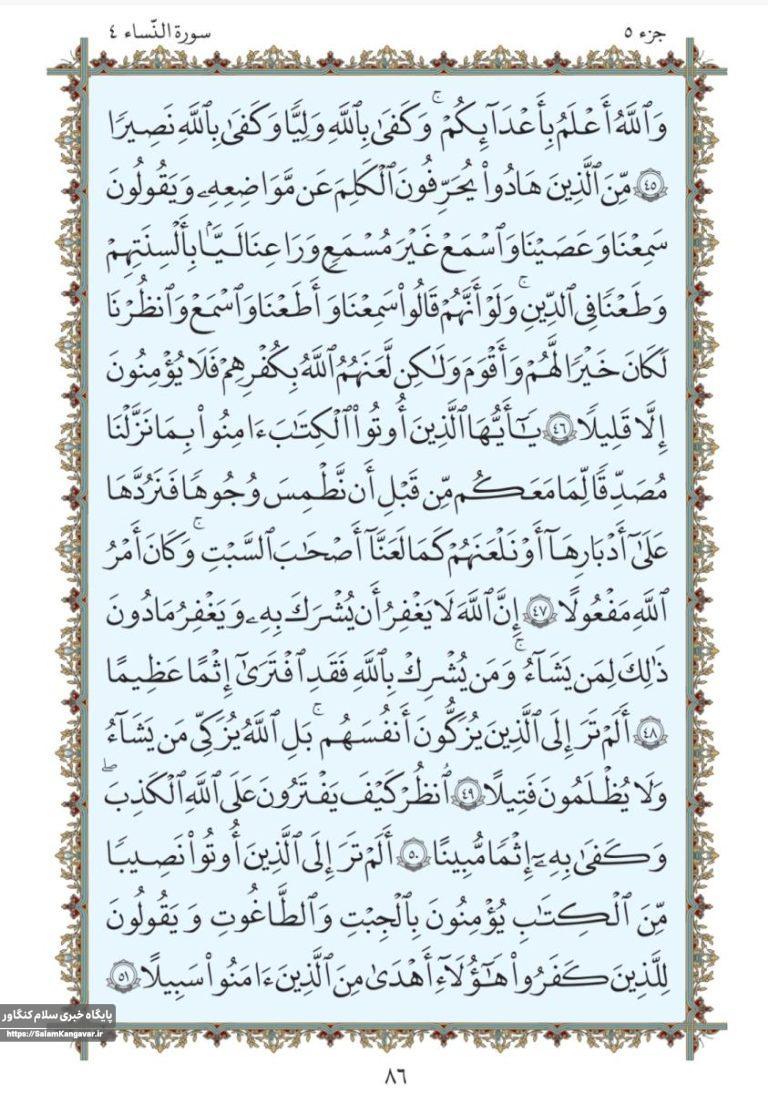 جزء ٥
سورة النّساء ٤
وَٱللَّهُ أَعْلَمُ بِأَعْدَآئِكُمْ ۚ وَكَفَىٰ بِٱللَّهِ وَلِيًّا وَكَفَىٰ بِٱللَّهِ نَصِيرًا
﴿٤٥﴾ مِّنَ ٱلَّذِينَ هَادُوا۟ يُحَرِّفُونَ ٱلْكَلِمَ عَن مَّوَاضِعِهِۦ وَيَقُولُونَ
سَمِعْنَا وَعَصَيْنَا وَٱسْمَعْ غَيْرَ مُسْمَعٍ وَرَاعِنَا لَيًّۢا بِأَلْسِنَتِهِمْ
وَطَعْنًا فِى ٱلدِّينِ ۚ وَلَوْ أَنَّهُمْ قَالُوا۟ سَمِعْنَا وَأَطَعْنَا وَٱسْمَعْ وَٱنظُرْنَا
لَكَانَ خَيْرًا لَّهُمْ وَأَقْوَمَ وَلَـٰكِن لَّعَنَهُمُ ٱللَّهُ بِكُفْرِهِمْ فَلَا يُؤْمِنُونَ
إِلَّا قَلِيلًا ﴿٤٦﴾ يَـٰٓأَيُّهَا ٱلَّذِينَ أُوتُوا۟ ٱلْكِتَـٰبَ ءَامِنُوا۟ بِمَا نَزَّلْنَا
مُصَدِّقًا لِّمَا مَعَكُم مِّن قَبْلِ أَن نَّطْمِسَ وُجُوهًا فَنَرُدَّهَا
عَلَىٰٓ أَدْبَارِهَآ أَوْ نَلْعَنَهُمْ كَمَا لَعَنَّآ أَصْحَـٰبَ ٱلسَّبْتِ ۚ وَكَانَ أَمْرُ
ٱللَّهِ مَفْعُولًا ﴿٤٧﴾ إِنَّ ٱللَّهَ لَا يَغْفِرُ أَن يُشْرَكَ بِهِۦ وَيَغْفِرُ مَا دُونَ
ذَٰلِكَ لِمَن يَشَآءُ ۚ وَمَن يُشْرِكْ بِٱللَّهِ فَقَدِ ٱفْتَرَىٰٓ إِثْمًا عَظِيمًا
﴿٤٨﴾ أَلَمْ تَرَ إِلَى ٱلَّذِينَ يُزَكُّونَ أَنفُسَهُم ۚ بَلِ ٱللَّهُ يُزَكِّى مَن يَشَآءُ
وَلَا يُظْلَمُونَ فَتِيلًا ﴿٤٩﴾ ٱنظُرْ كَيْفَ يَفْتَرُونَ عَلَى ٱللَّهِ ٱلْكَذِبَ ۖ
وَكَفَىٰ بِهِۦٓ إِثْمًا مُّبِينًا ﴿٥٠﴾ أَلَمْ تَرَ إِلَى ٱلَّذِينَ أُوتُوا۟ نَصِيبًا
مِّنَ ٱلْكِتَـٰبِ يُؤْمِنُونَ بِٱلْجِبْتِ وَٱلطَّـٰغُوتِ وَيَقُولُونَ
لِلَّذِينَ كَفَرُوا۟ هَـٰٓؤُلَآءِ أَهْدَىٰ مِنَ ٱلَّذِينَ ءَامَنُوا۟ سَبِيلًا ﴿٥١﴾
پایگاه خبری سلام کنگاور
https://SalamKangavar.ir
٨٦